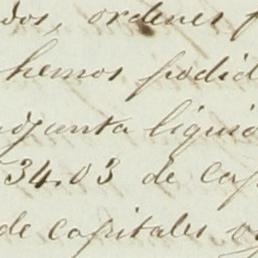 dos, ordenes p
hemos podid
adjunta liquid
34.03 de cap
de capitales y